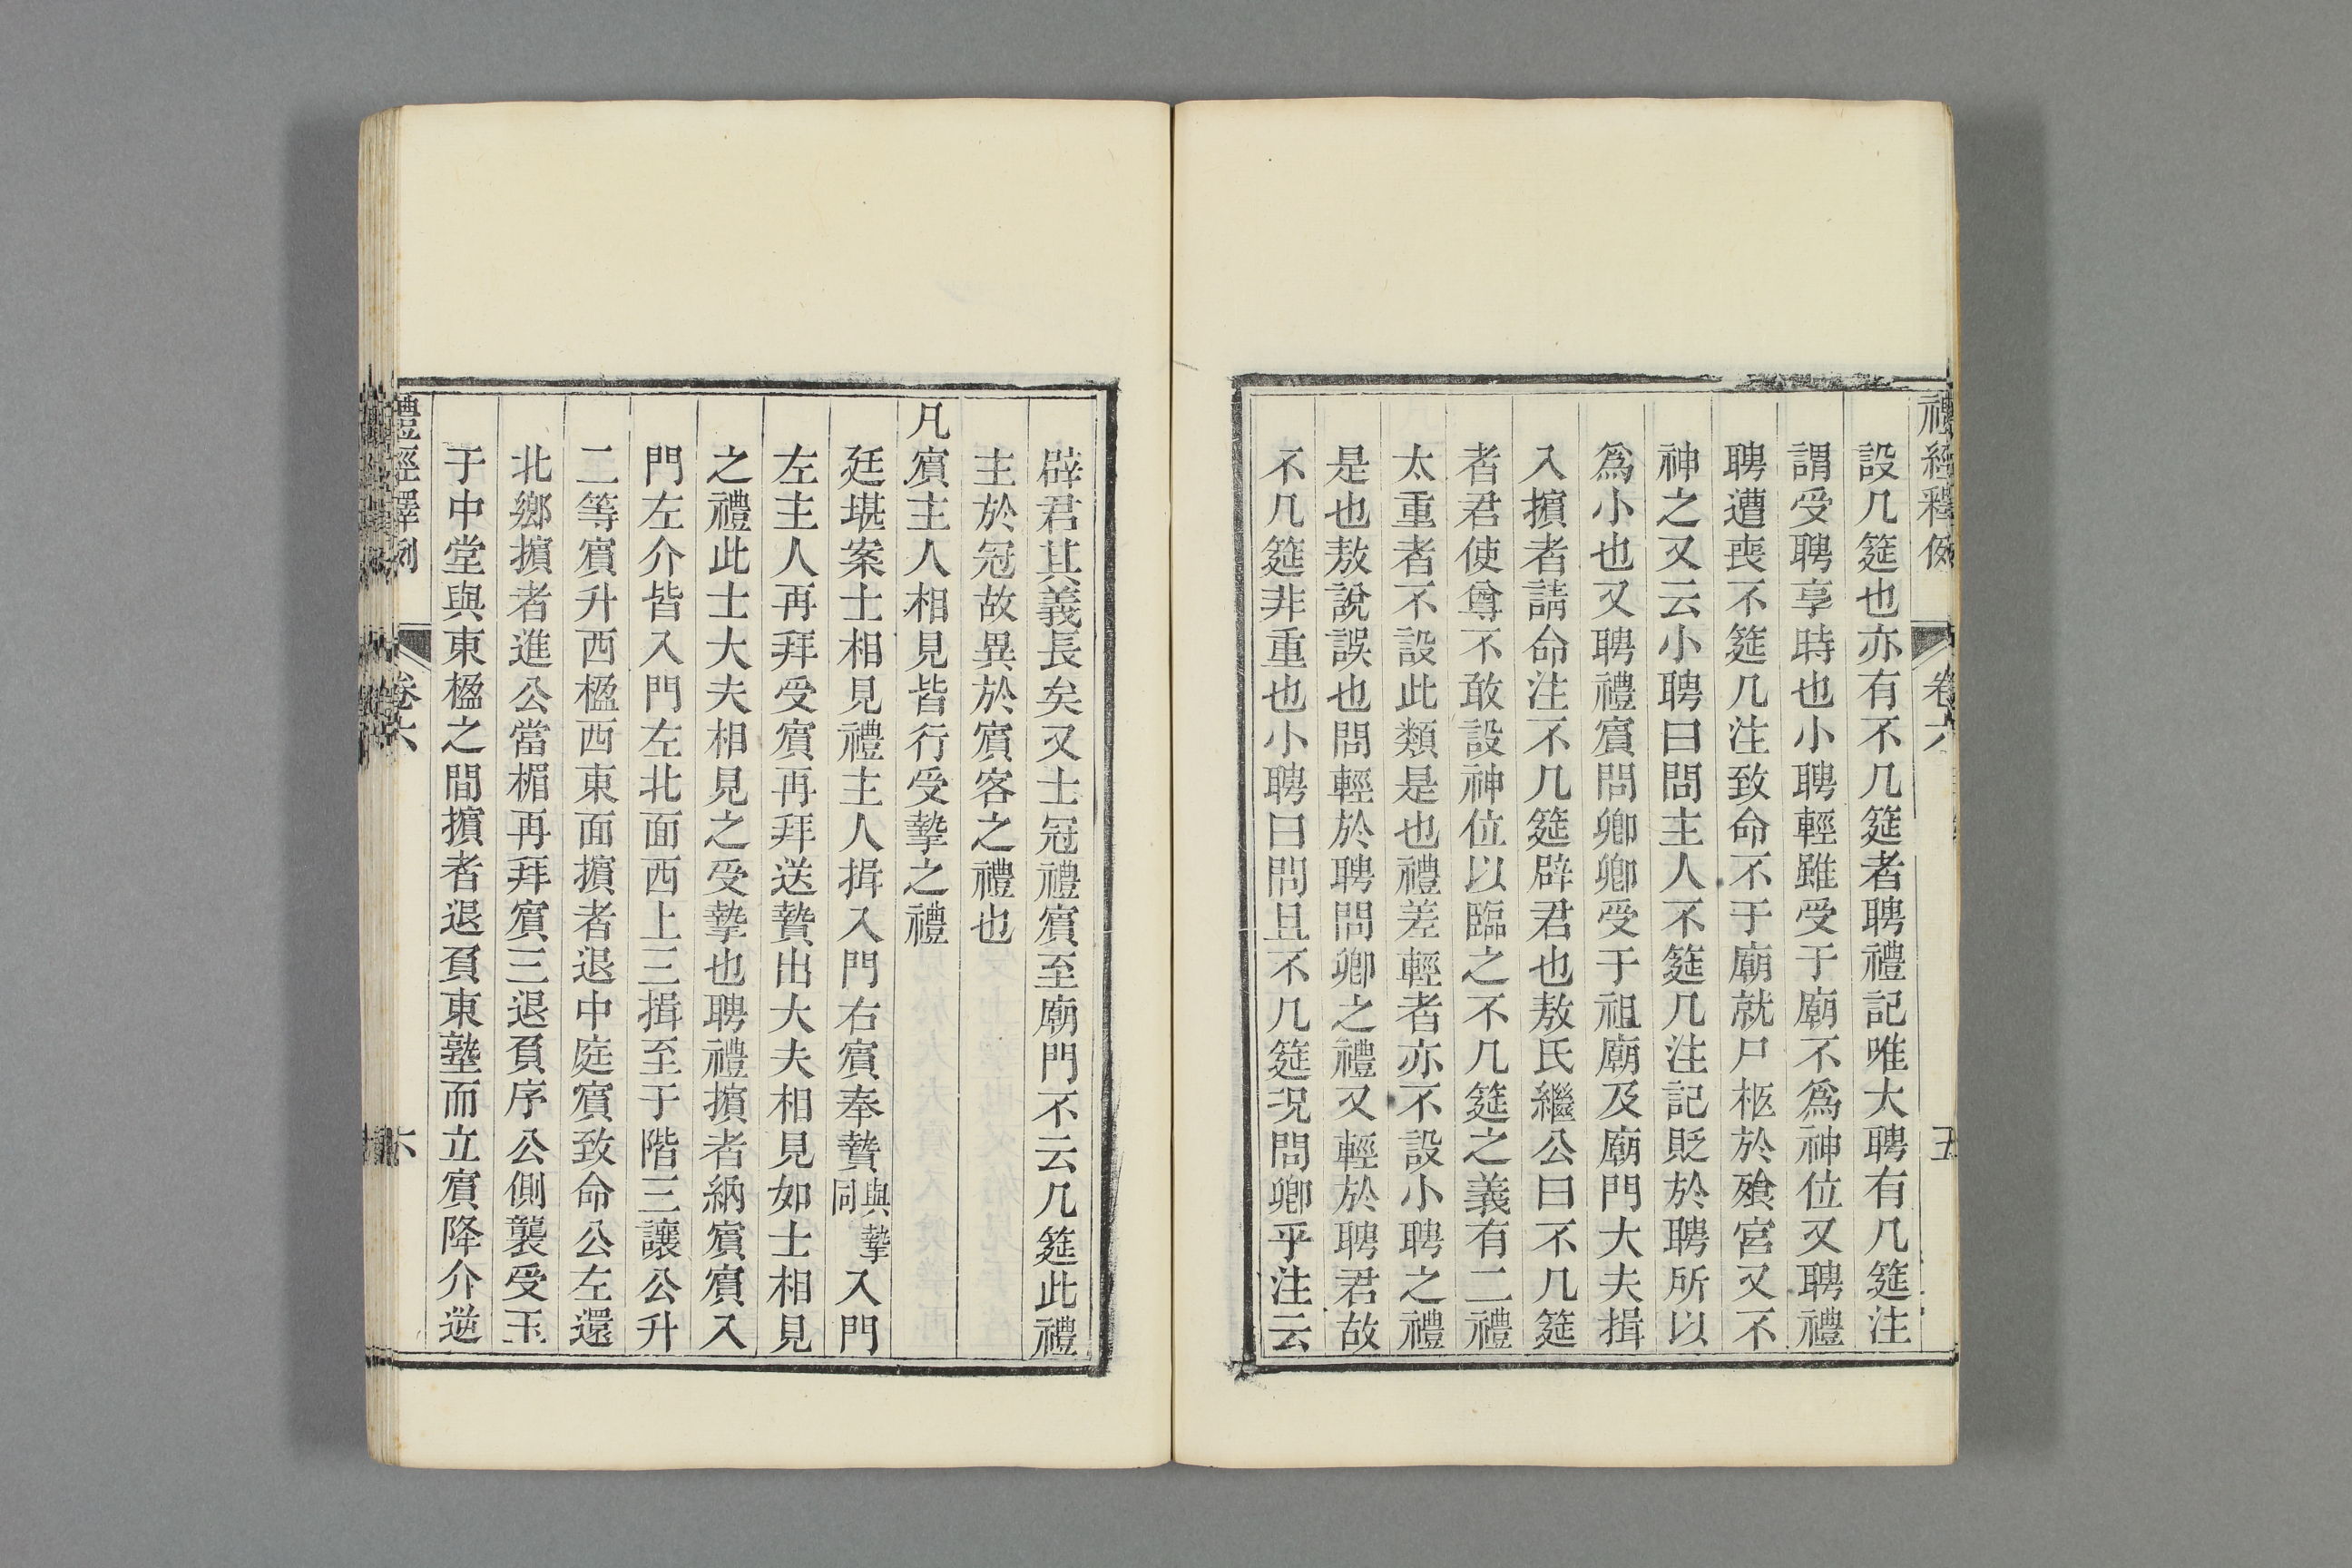 禮經釋例 卷六 五
設几筵也亦有不几筵者聘禮記唯大聘有几筵注
謂受聘享時也小聘輕雖受于廟不爲神位又聘禮
聘遭喪不筵几注致命不于廟就尸柩於殯宮又不
神之又云小聘曰問主人不筵几注記貶於聘所以
爲小也又聘禮賓問卿卿受于祖廟及廟門大夫揖
入擯者請命注不几筵辟君也敖氏繼公曰不几筵
者君使尊不敢設神位以臨之不几筵之義有二禮
太重者不設此類是也禮差輕者亦不設小聘之禮
是也敖說誤也問輕於聘問卿之禮又輕於聘君故
不几筵非重也小聘曰問且不几筵况問卿乎注云
辟君其義長矣又士冠禮賓至廟門不云几筵此禮
主於冠故異於賓客之禮也
凡賓主人相見皆行受摯之禮
廷堪案士相見禮主人揖入門右賓奉贄與摯同入門
左主人再拜受賓再拜送贄出大夫相見如士相見
之禮此士大夫相見之受摯也聘禮擯者納賓賓入
門左介皆入門左北面西上三揖至于階三讓公升
二等賓升西楹西東面擯者退中庭賓致命公左還
北鄉擯者進公當楣再拜賓三退負序公側襲受玉
于中堂與東楹之間擯者退負東塾而立賓降介逆
禮經釋例 卷六 六